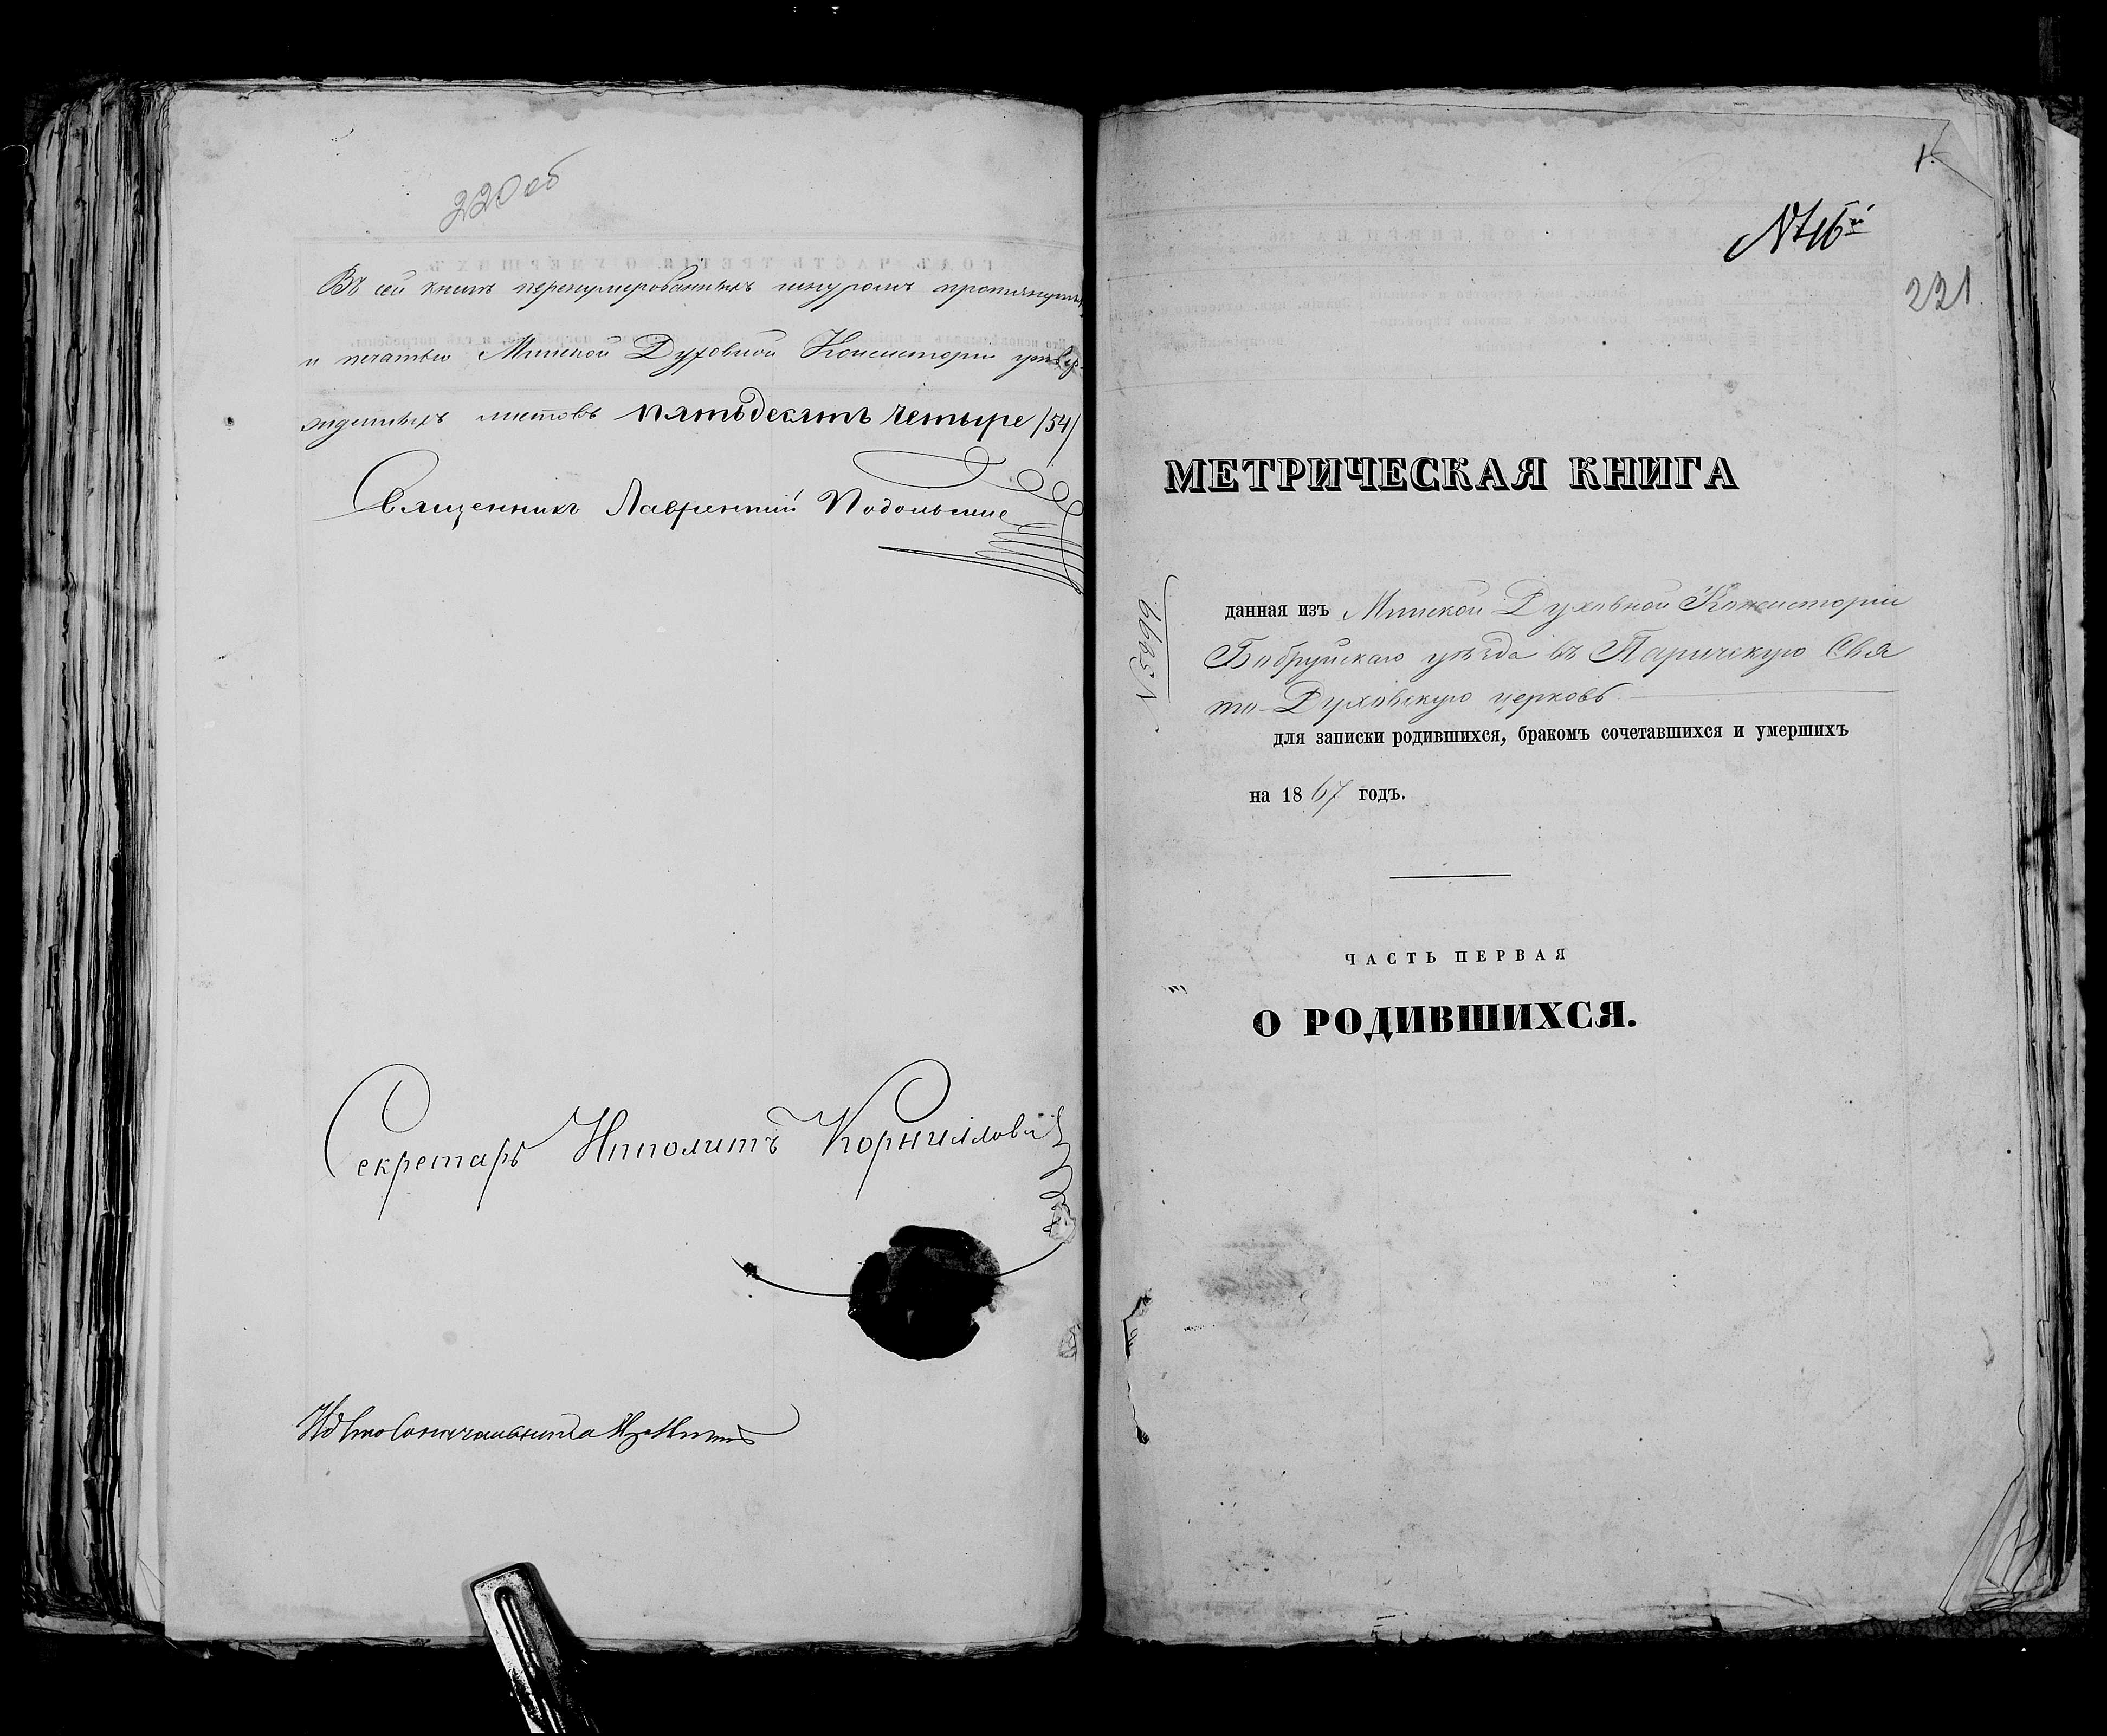 220 об
Въ сей книгѣ перенумерованныхъ шнуромъ протянутыхъ
и печатью Минской Духовной Консисторіи утвер-
жденныхъ листовъ пятьдесятъ четыре /54/
Священникъ Лаврентій Подольскій
Секретарь Иполитъ Корнилловичъ
1.
№ 46й
221
МЕТРИЧЕСКАЯ КНИГА
№ 5999
данная изъ Минской Духовной Консисторіи
Бобруйскаго уѣзда въ Паричскую Свя
то-Духовскую церковь
для записки родившихся, бракомъ сочетавшихся и умершихъ
на 1867 годъ.
ЧАСТЬ ПЕРВАЯ
О РОДИВШИХСЯ.